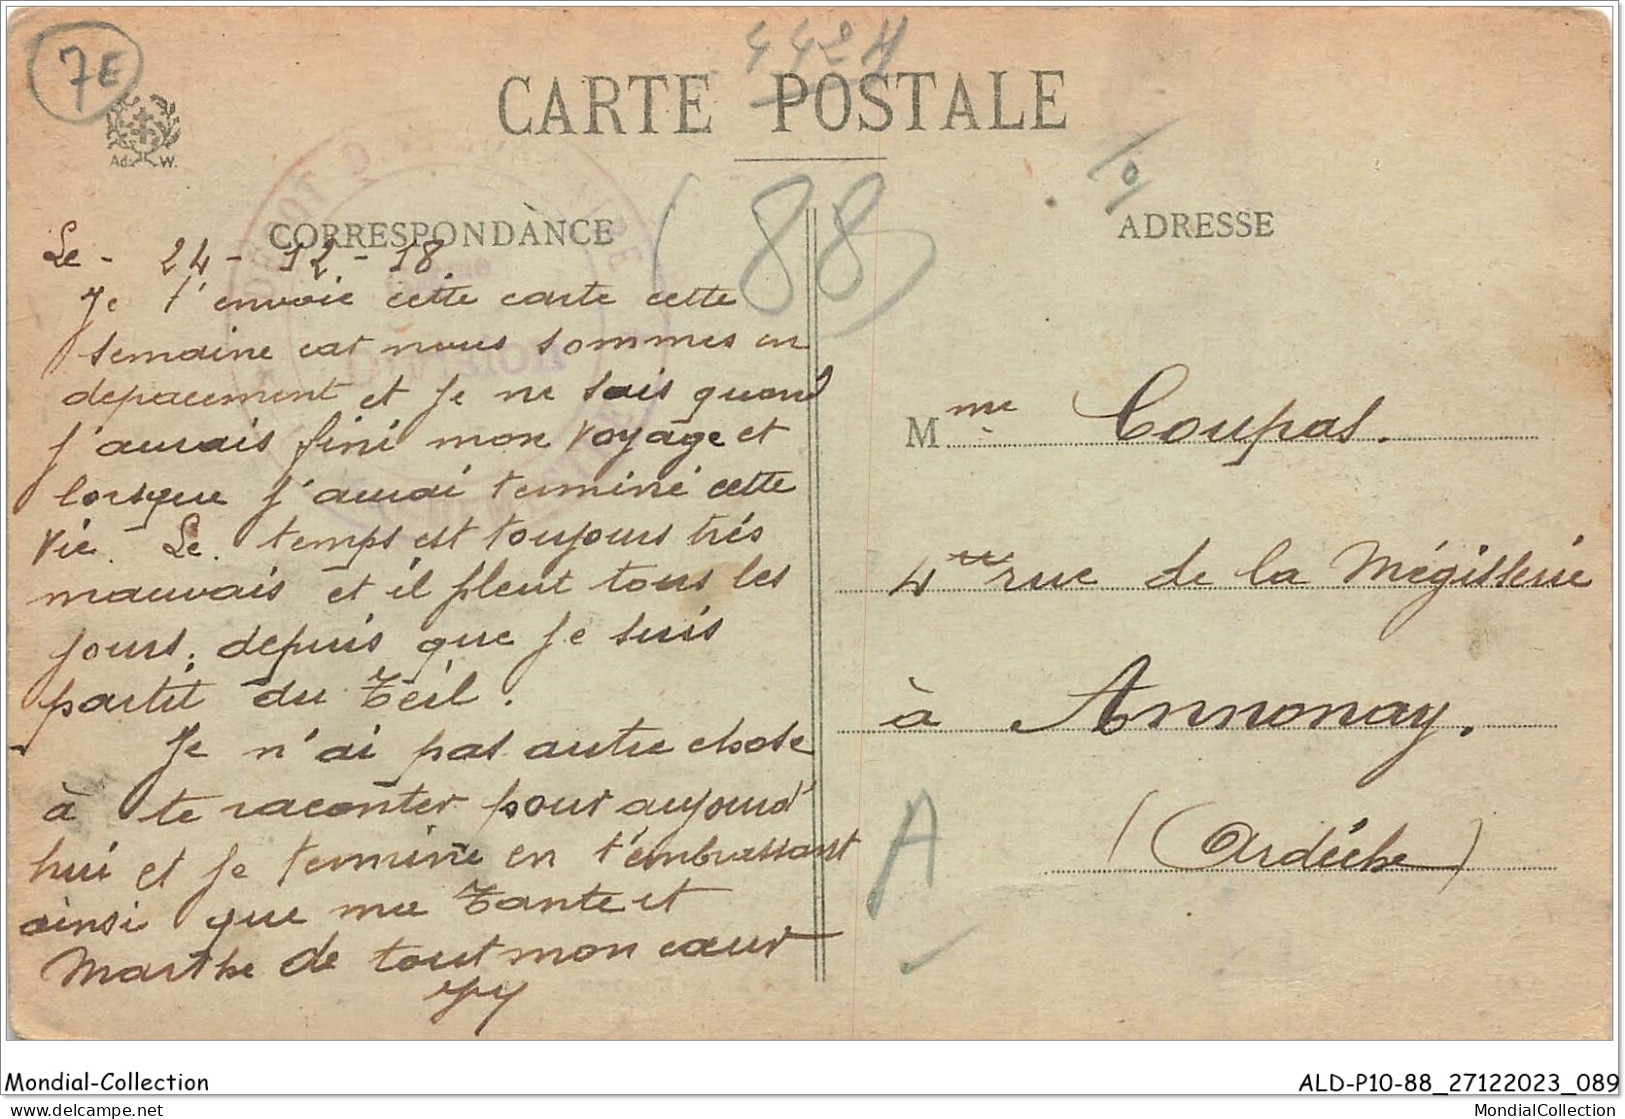 442H
7E
CARTE POSTALE
Ad. W.
(88)
CORRESPONDANCE
ADRESSE
Le - 24 - 12 - 18
Je t'envoie cette carte cette
semaine car nous sommes en
depacement et je ne sais quand
j'aurais fini mon voyage et
lorsque j'aurai terminé cette
vie. Le temps est toujours très
mauvais et il pleut tous les
jours, depuis que je suis
partit du Teil.
Je n'ai pas autre chose
à te raconter pour aujourd'
hui et je termine en t'embrassant
ainsi que ma Tante et
Marthe de tout mon cœur
Mme Coupas.
4 rue de la Mégisserie
à Annonay.
(Ardèche)
A
Mondial-Collection
ALD-P10-88_27122023_089
www.delcampe.net
MondialCollection